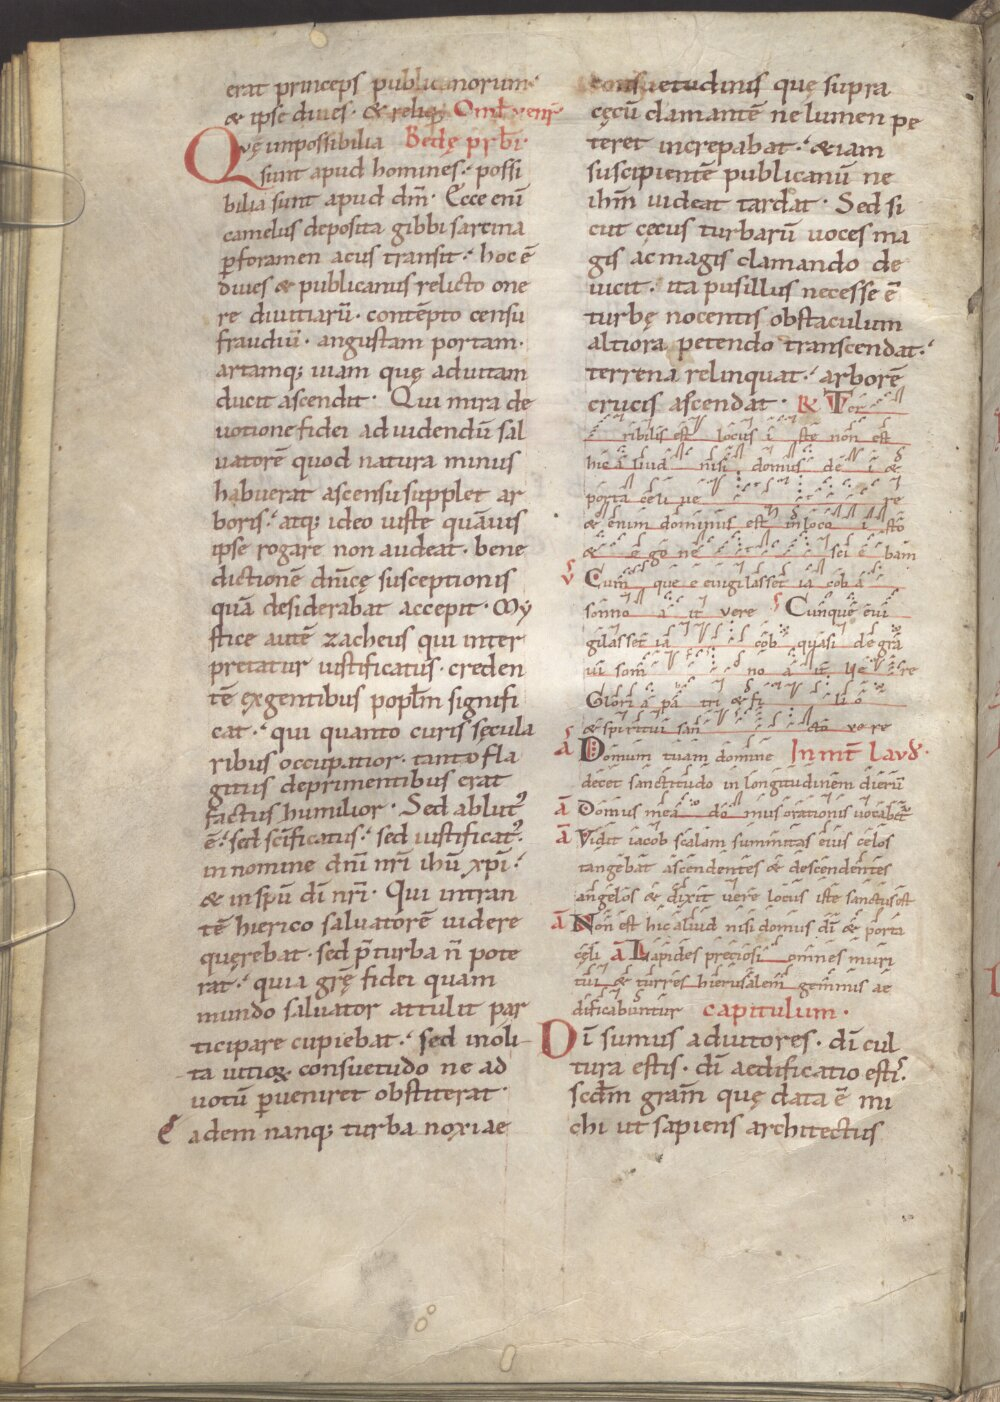 erat princeps publicanorum·
& ipse diues· & reliq; Oml̄ uener̄
Qvę impossibilia Bedę prb̄i·
sunt apud homines· possi
bilia sunt apud dm̄· Ecce eni̅
camelus deposita gibbi sarcina
ꝑ foramen acus transit· hoc ē
diues & publicanus relicto one
re diuitiaru̅· conte̅pto censu
fraudiu̅· angustam portam·
artamq; uiam quę ad uitam
ducit ascendit· Qui mira de
uotione fidei ad uidendu̅ sal
uatore̅ quod natura minus
habuerat ascensu supplet ar
boris· atq; ideo iuste qua̅uis
ipse rogare non audeat· bene
dictione̅ dn̅icę susceptionis
qua̅ desiderabat accepit· My
stice aute̅ zacheus qui inter
pretatur iustificatus· creden
te̅ ex gentibus popl̅m signifi
cat· qui quanto curis secula
ribus occupatior· tanto fla
gitiis deprimentibus erat
factus humilior· Sed ablut᾽
ē· sed sc̅ificatus· sed iustificat᾽·
in nomine dn̅i nr̅i ihu̅ xp̅i·
& in spu̅ di̅ nr̅i· Qui intran
te̅ hierico saluatore̅ uidere
quęrebat· sed p̅ turba n̅ pote
rat· quia gr̅ę fidei quam
mundo saluator attulit par
ticipare cupiebat· sed inoli
ta uitioꝝ consuetudo ne ad
uotu̅ ꝑueniret obstiterat·
Eadem nanq; turba noxiae
consuetudinis quę supra
cęcu̅ clamante̅ ne lumen pe
teret increpabat· & iam
suscipiente̅ publicanu̅ ne
ihm̅ uideat tardat· Sed si
cut cęcus turbaru̅ uoces ma
gis ac magis clamando de
uicit· ita pusillus necesse ē
turbę nocentis obstaculum
altiora petendo transcendat·
terrena relinquat· arbore̅
crucis ascendat· ℟ Ter
ribilis est locus i ste non est
hic a liud nisi domus de i &
porta cęli ue re
& enim dominus est in loco i sto
& e go ne sci e bam
℣ Cum que e euigilasset ia cob a
somno a it vere ℣ Cunque eui
gilasset ia cob quasi de gra
ui som no a it ve re
Glori a pa tri & fi li o
& spiritui san cto ve re
a̅ Domum tuam domine In mt̅ Laud̅·
decet sanctitudo in longitudinem dieru̅
a̅ Domus mea do mus orationis uocabitur
a̅ Vidit iacob scalam summitas eius celos
tangebat ascendentes & descendentes
angelos & dixit vere locus iste sanctus est
a̅ Non est hic aliud nisi domus di̅ & porta
cęli a̅ Lapides preciosi omnes muri
tui & turres hierusalem gemmis ae
dificabuntur capitulum·
Di̅ sumus adiutores· di̅ cul
tura estis· di̅ aedificatio estis·
scd̅m gram̅ quę data ē mi
chi ut sapiens architectus